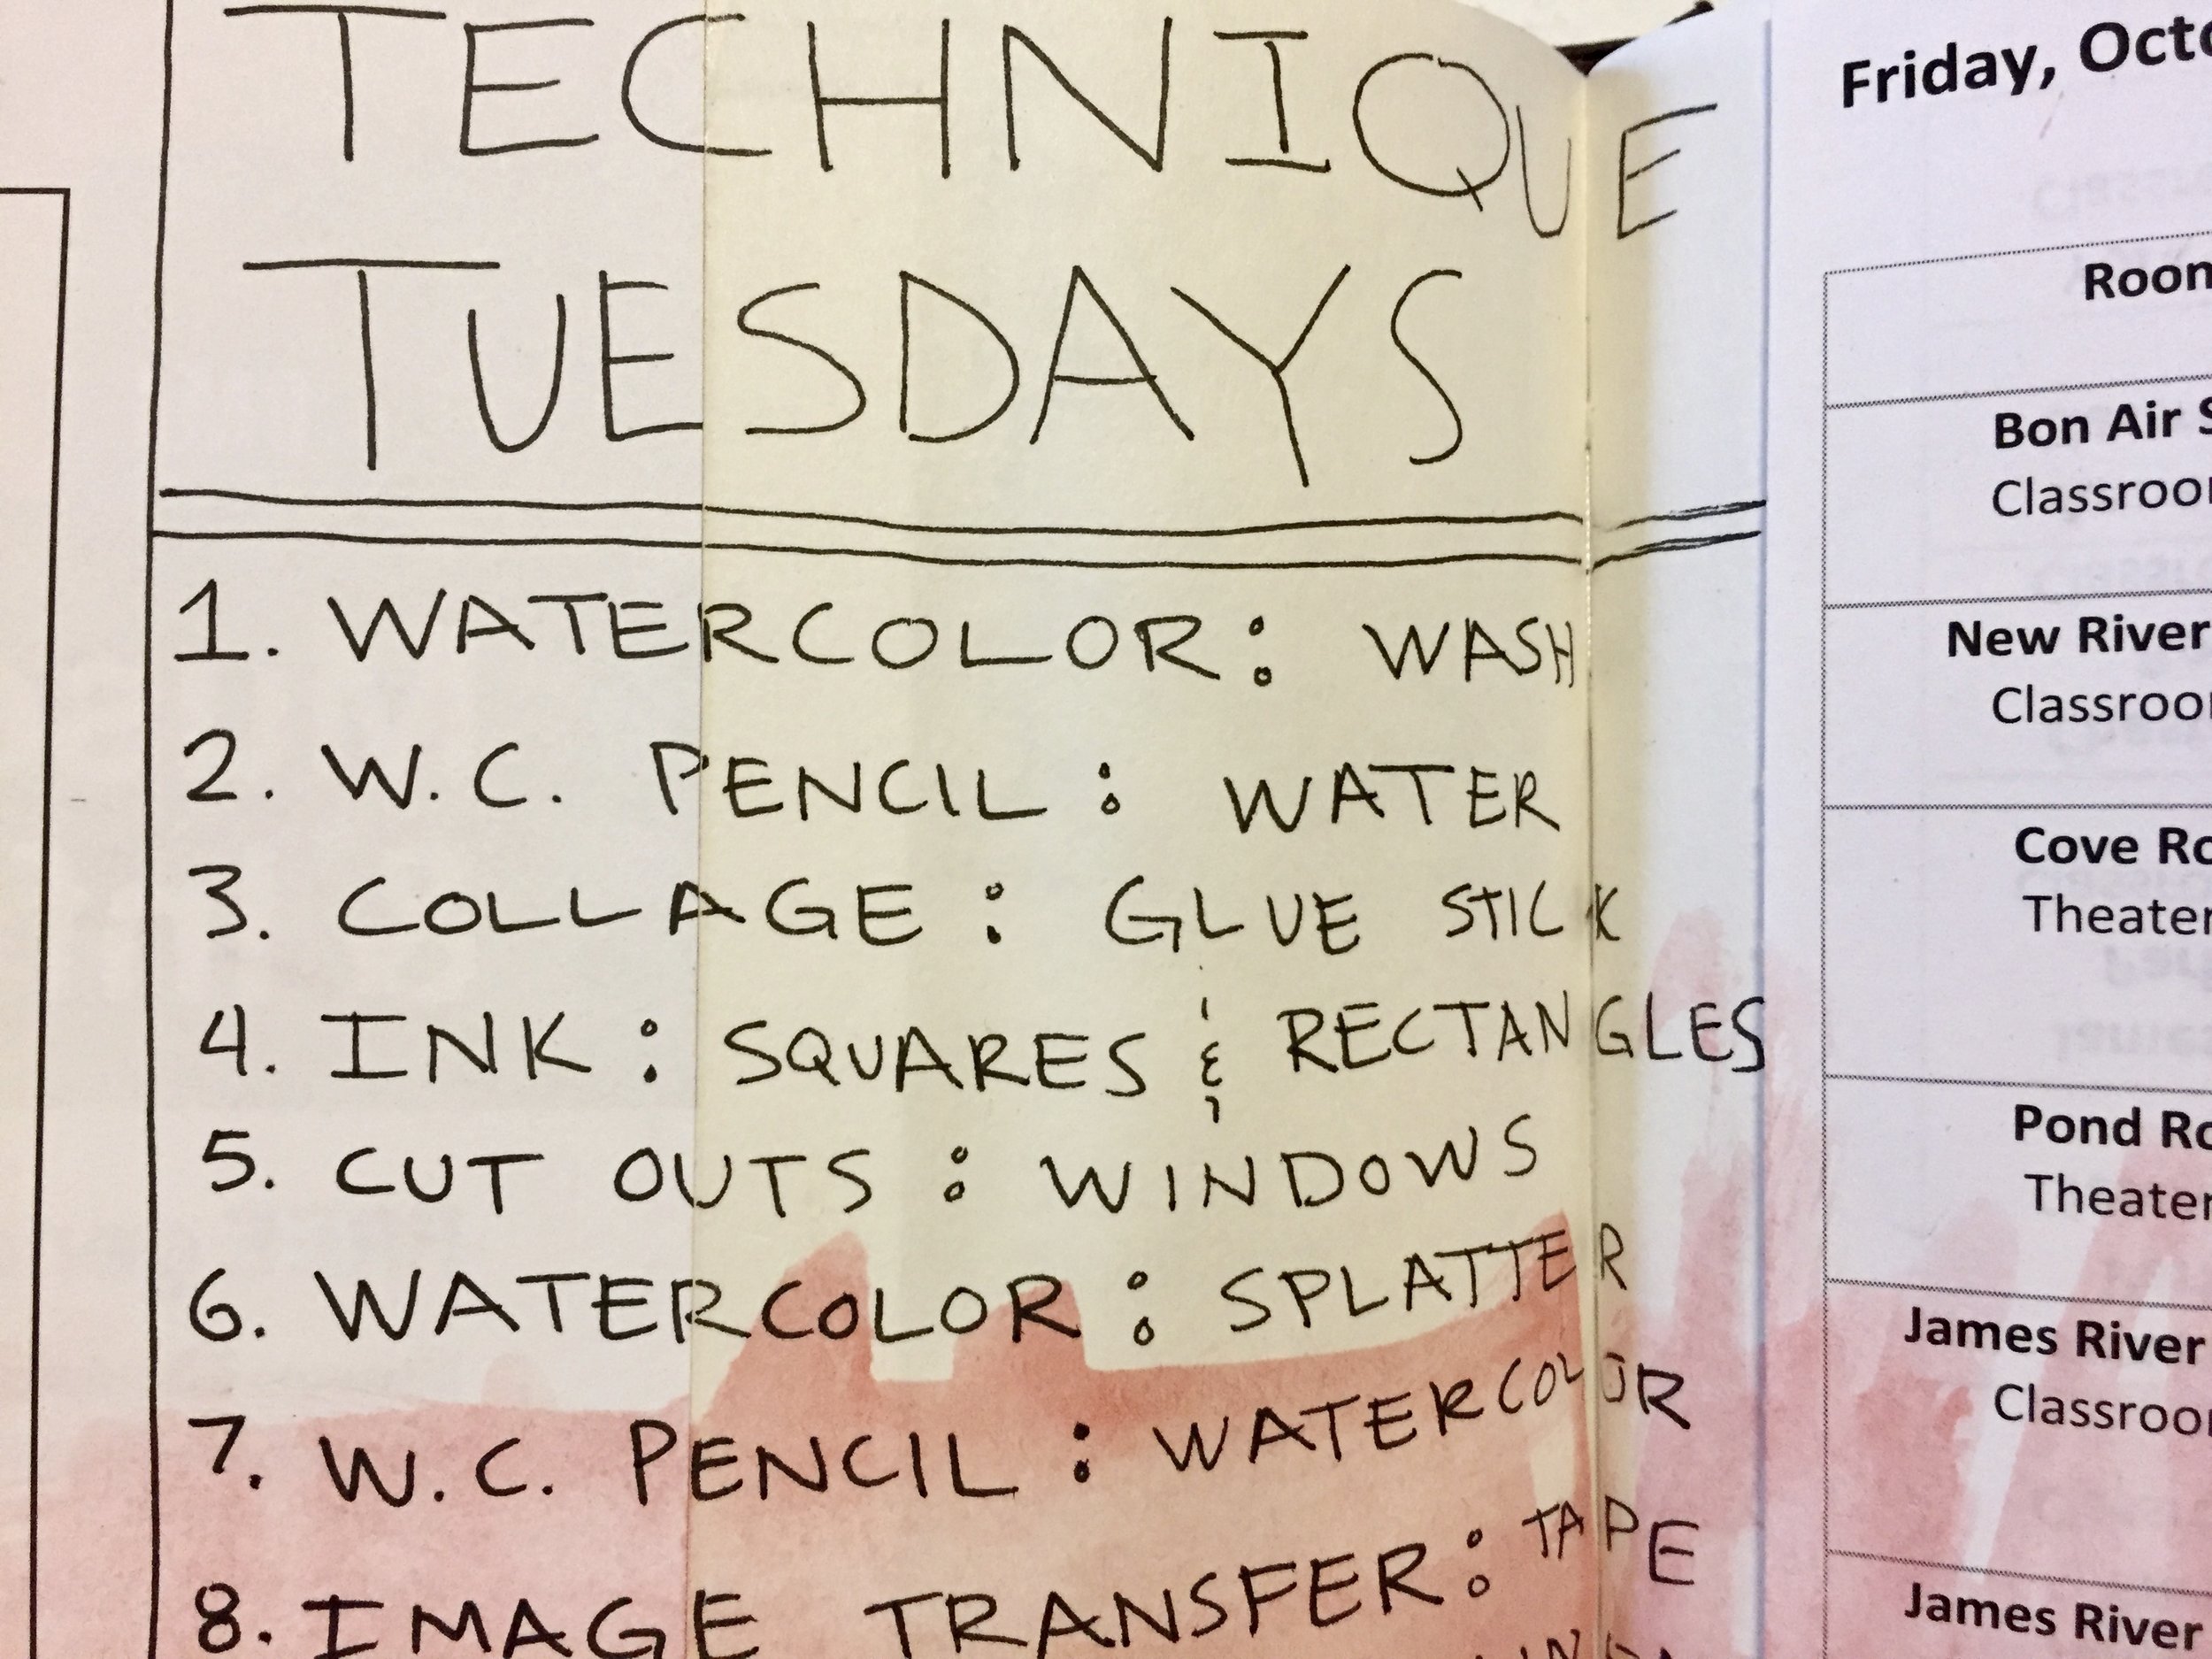 TECHNIQUE
TUESDAYS
1. WATERCOLOR: WASH
2. W.C. PENCIL: WATER
3. COLLAGE: GLUE STICK
4. INK: SQUARES & RECTANGLES
5. CUT OUTS: WINDOWS
6. WATERCOLOR: SPLATTER
7. W.C. PENCIL: WATERCOLOR
8. IMAGE TRANSFER: TAPE
Friday,
Bon Air
New River
Cove
Pond
James River
James River